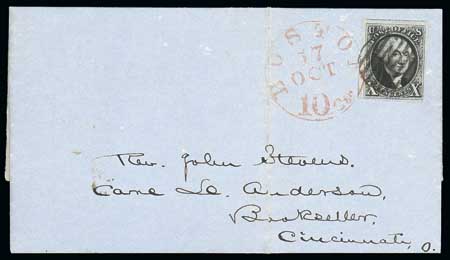 BOSTON
17
OCT
10 cts
POST OFFICE
X X
Rev. John Stevens.
Care Le. Anderson,
Bookseller,
Cincinnati, O.